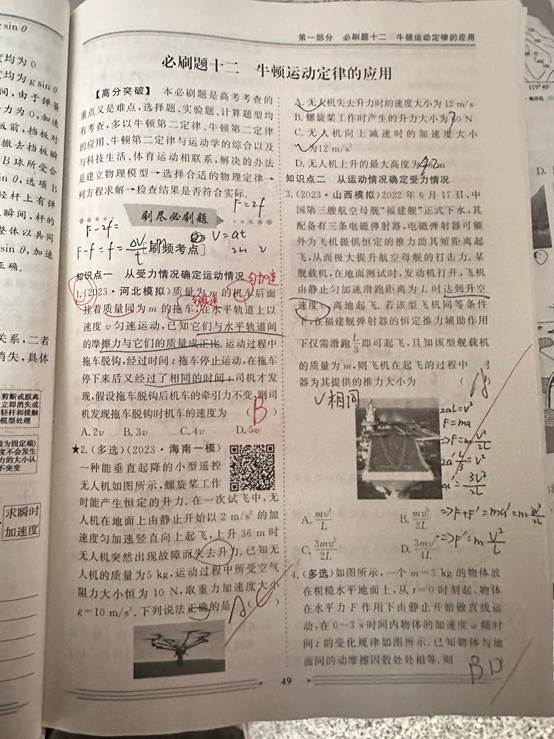 第一部分 必刷题十二 牛顿运动定律的应用
必刷题十二 牛顿运动定律的应用
【高分突破】 本必刷题是高考考查的
重点又是难点，选择题、实验题、计算题型均
有考查，多以牛顿第二定律、牛顿第二定律
的应用、牛顿第二定律与运动学的综合以及
与科技生活、体育运动相联系，解决的办法
是建立物理模型→选择合适的物理定律→
列方程求解→检查结果是否符合实际．
刷尽必刷题
F=2f
F-2f=
V=at
［刷频考点］
知识点一 从受力情况确定运动情况
匀加速
1.(2023·河北模拟)质量为m的机车后面
挂着质量同为m的拖车，在水平轨道上以
速度v匀速运动，已知它们与水平轨道间
的摩擦力与它们的质量成正比．运动过程中
拖车脱钩，经过时间t拖车停止运动，在拖车
停下来后又经过了相同的时间t，司机才发
现，假设拖车脱钩后机车的牵引力不变，则司
机发现拖车脱钩时机车的速度为 ( )
B
A.2v B.3v C.4v D.5v
★2.(多选)(2023·海南一模)
一种能垂直起降的小型遥控
无人机如图所示，螺旋桨工作
时能产生恒定的升力．在一次试飞中，无
人机在地面上由静止开始以2 m/s²的加
速度匀加速竖直向上起飞，上升36 m时
无人机突然出现故障而失去升力．已知无
人机的质量为5 kg，运动过程中所受空气
阻力大小恒为10 N，取重力加速度大小
g=10 m/s²．下列说法正确的是 ( )
AC
A.无人机失去升力时的速度大小为12 m/s
B.螺旋桨工作时产生的升力大小为70 N
C.无人机向上减速时的加速度大小
为12 m/s²
D.无人机上升的最大高度为42 m
知识点二 从运动情况确定受力情况
3.(2023·山西模拟)2022年6月17日，中
国第三艘航空母舰“福建舰”正式下水，其
配备有三条电磁弹射器，电磁弹射器可额
外为飞机提供恒定的推力助其短距离起
飞，从而极大提升航空母舰的打击力．某
舰载机，在地面测试时，发动机打开，飞机
由静止匀加速滑跑距离为L时达到升空
速度v，离地起飞．若该型飞机同等条件
下，在福建舰弹射器的恒定推力辅助作用
下仅需滑跑L/3即可起飞，且知该舰载机
的质量为m，则飞机在起飞的过程中弹射
器为其提供的推力大小为 ( )
V相同
2aL=v²
F=ma
A.mv²/2L B.mv²/L
C.3mv²/2L D.3mv²/4L
4.(多选)如图所示，一个m=3 kg的物体放
在粗糙水平地面上，从t=0时刻起，物体
在水平力F作用下由静止开始做直线运
动，在0~3 s时间内物体的加速度a随时
间t的变化规律如图所示．已知物体与地
面间的动摩擦因数处处相等，则
BD
49